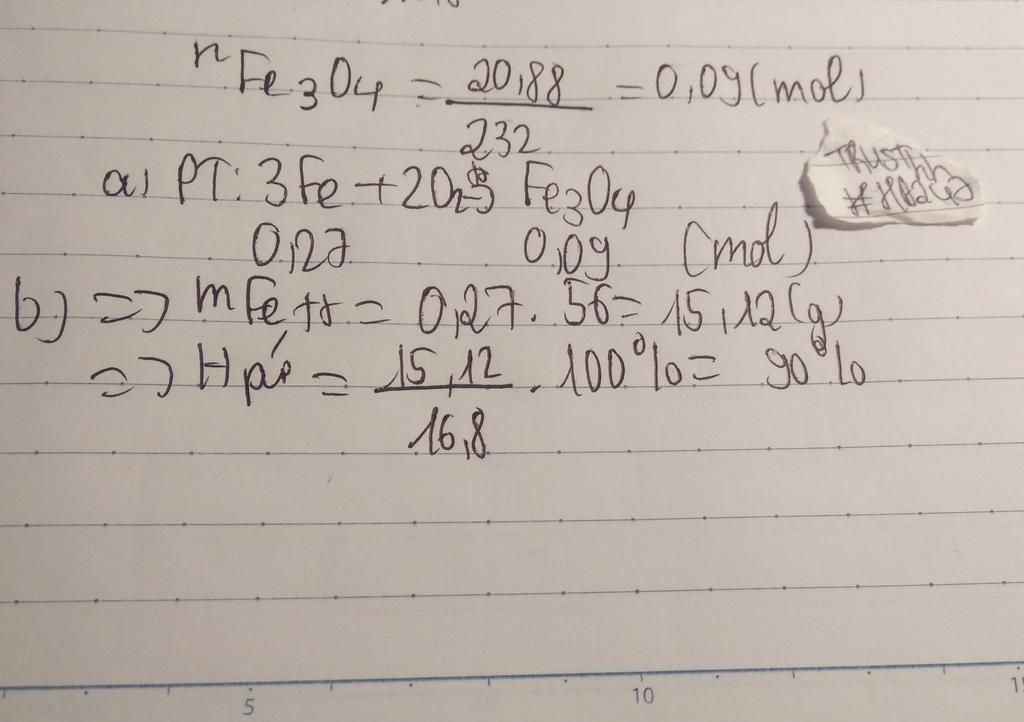 nFe3O4 = 20,88/232 = 0,09(mol)
a) PT: 3Fe + 2O2 → Fe3O4
0,27 0,09 (mol)
b) => mFe tt = 0,27 . 56 = 15,12(g)
=> H pứ = 15,12/16,8 . 100% = 90%
5 10 15